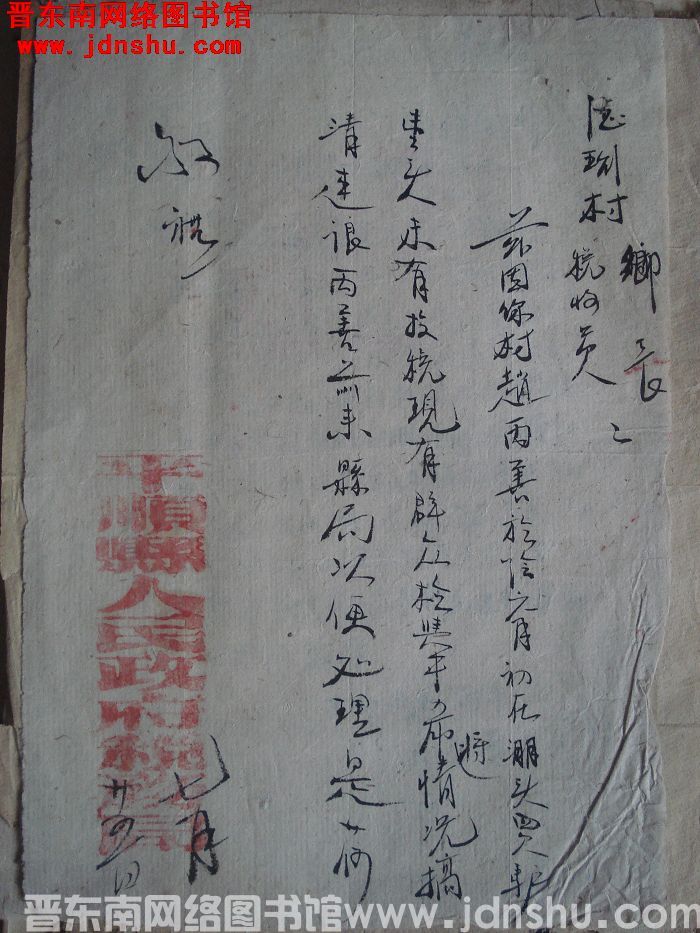 晋东南网络图书馆
www.jdnshu.com
村 鄉長
税收員
茲因你村趙丙善於陰六月初在 頭買
未有投税現有群众检舉 將情况搞
清速 丙善 來縣局以便处理是荷
敬礼
七月
廿四日
平順縣人民政府税務局
晋东南网络图书馆www.jdnshu.com